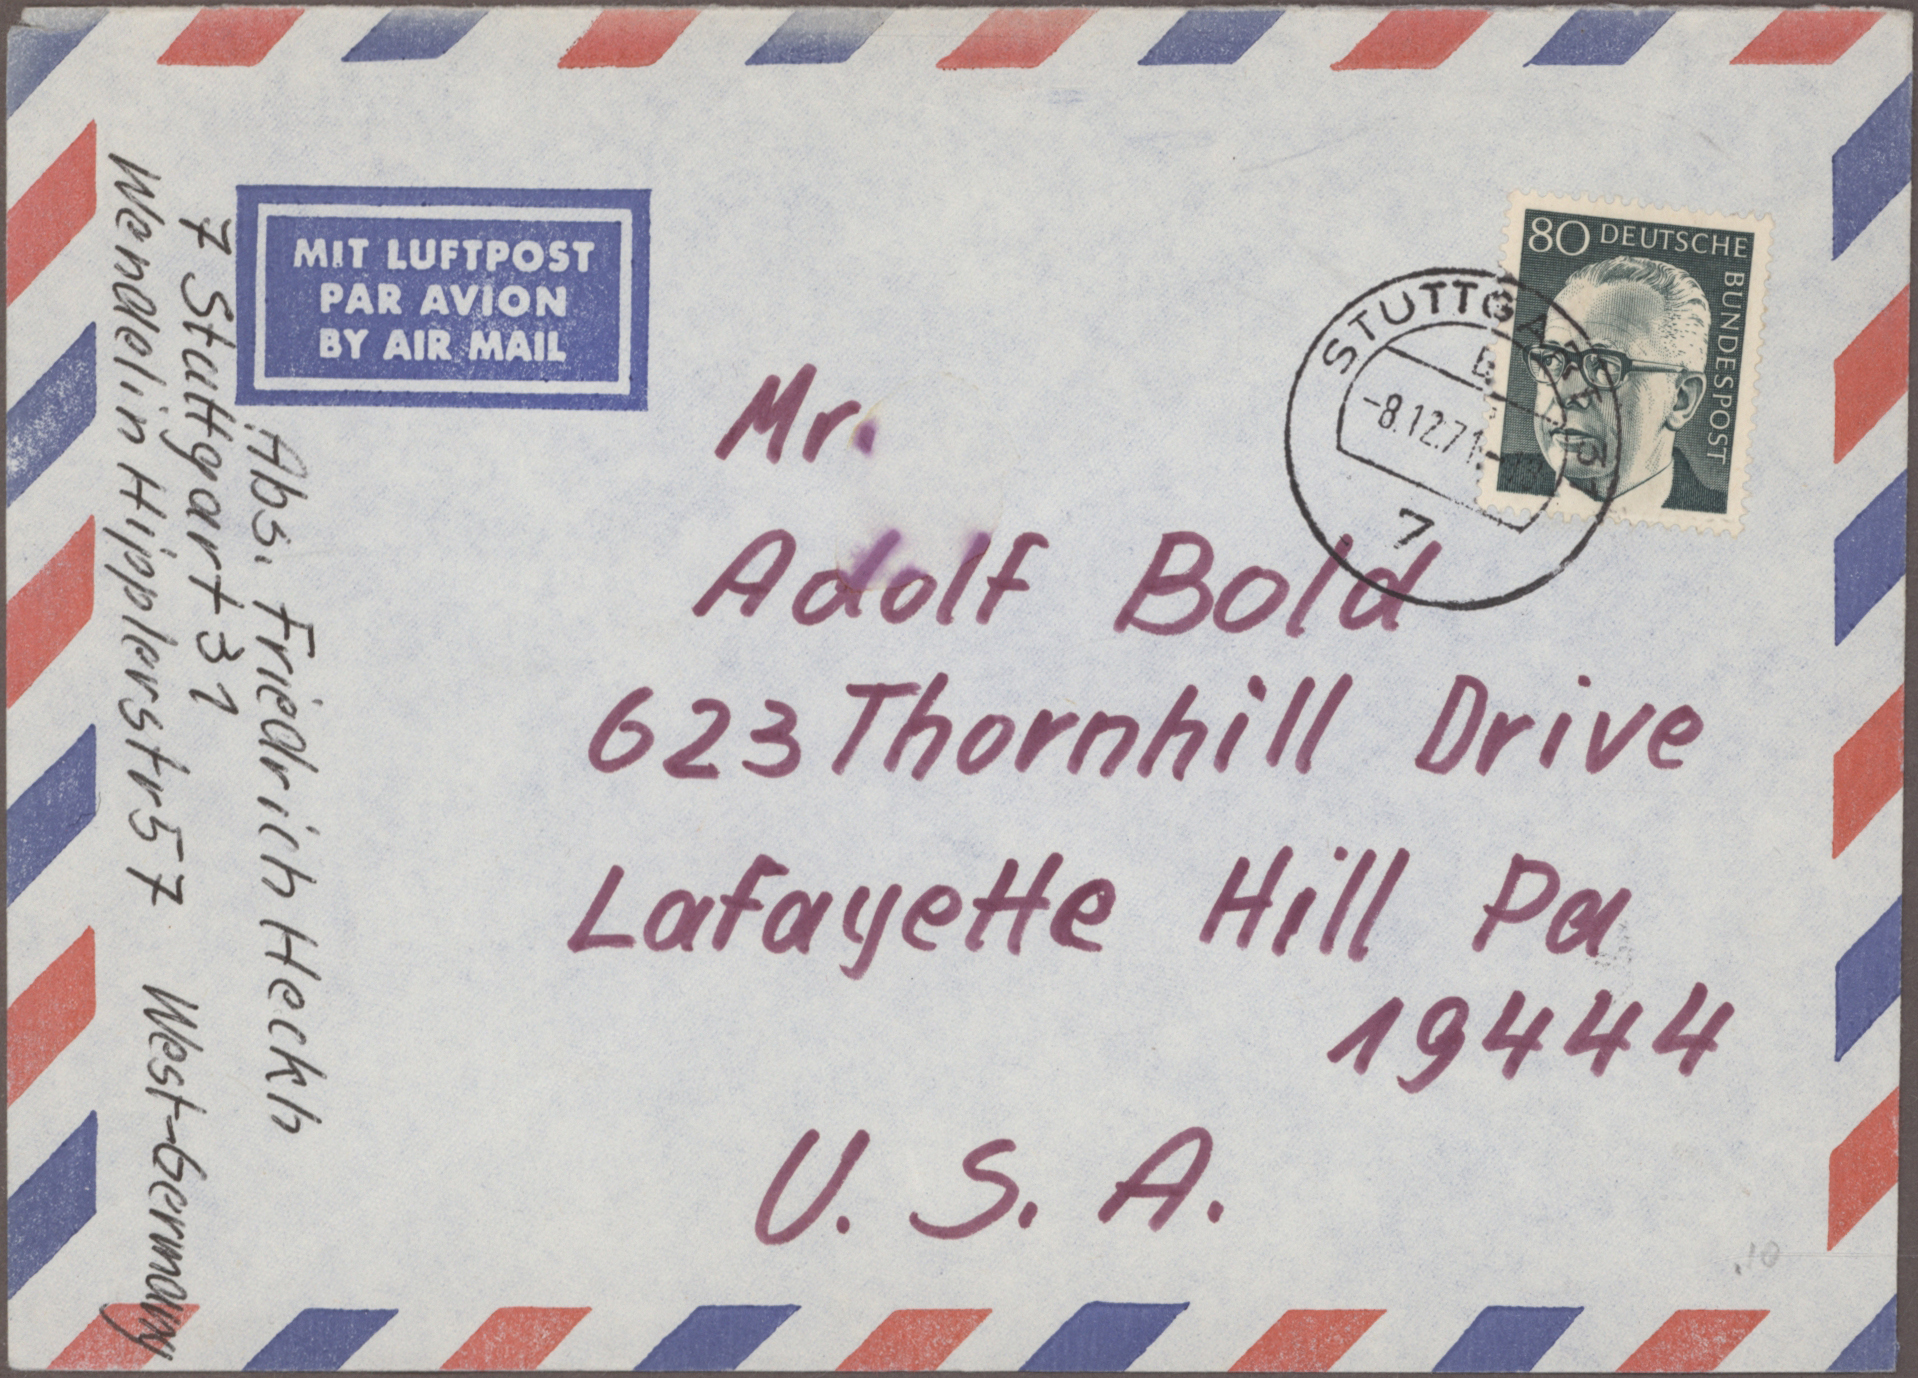 MIT LUFTPOST
PAR AVION
BY AIR MAIL
80 DEUTSCHE
BUNDESPOST
STUTTGART
-8.12.71
7
Mr.
Adolf Bold
623 Thornhill Drive
Lafayette Hill Pa
19444
U. S. A.
Abs. Friedrich Heckh
7 Stuttgart 31
Wendelin Hipplerstr 57 West-Germany
.10